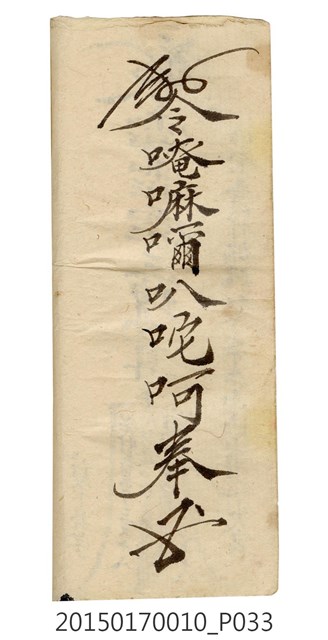 令唵嘛嚩叭吒呵奉
20150170010_P033